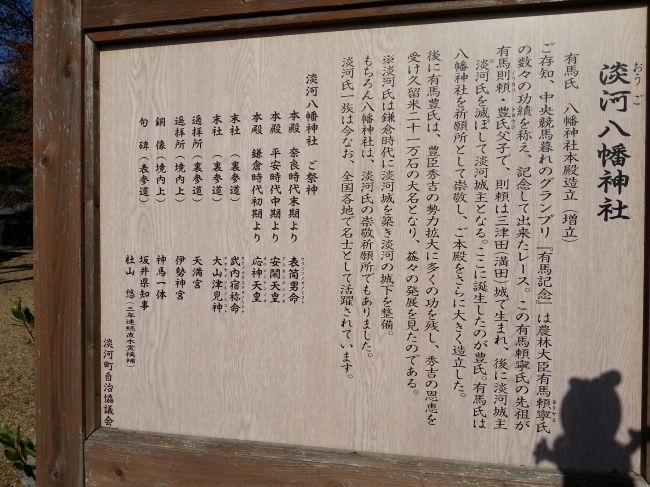 淡河八幡神社
おうご
有馬氏 八幡神社本殿造立(増立)
ご存知、中央競馬暮れのグランプリ『有馬記念』は農林大臣有馬頼寧氏
の数々の功績を称え、記念して出来たレース。この有馬頼寧氏の先祖が
有馬則頼・豊氏父子で、則頼は三津田(満田)城で生まれ、後に淡河城主
淡河氏を滅ぼして淡河城主となる。ここに誕生したのが豊氏。有馬氏は
八幡神社を祈願所として崇敬し、ご本殿をさらに大きく造立した。
後に有馬豊氏は、豊臣秀吉の勢力拡大に多くの功を残し、秀吉の恩恵を
受け久留米二十一万石の大名となり、益々の発展を見たのである。
※淡河氏は鎌倉時代に淡河城を築き淡河の城下を整備。
もちろん八幡神社は、淡河氏の崇敬祈願所でもありました。
淡河氏一族は今なお、全国各地で名士として活躍されています。
淡河八幡神社 ご祭神
本殿 奈良時代末期より 表筒男命
本殿 平安時代中期より 安閑天皇
本殿 鎌倉時代初期より 応神天皇
末社 (裏参道) 武内宿祢命
末社 (裏参道) 大山津見神
遥拝所(裏参道) 天満宮
遥拝所(境内上) 伊勢神宮
銅像(境内上) 神馬一体
句碑(表参道) 坂井県知事
杜山 悠(三年連続直木賞候補)
淡河町自治協議会